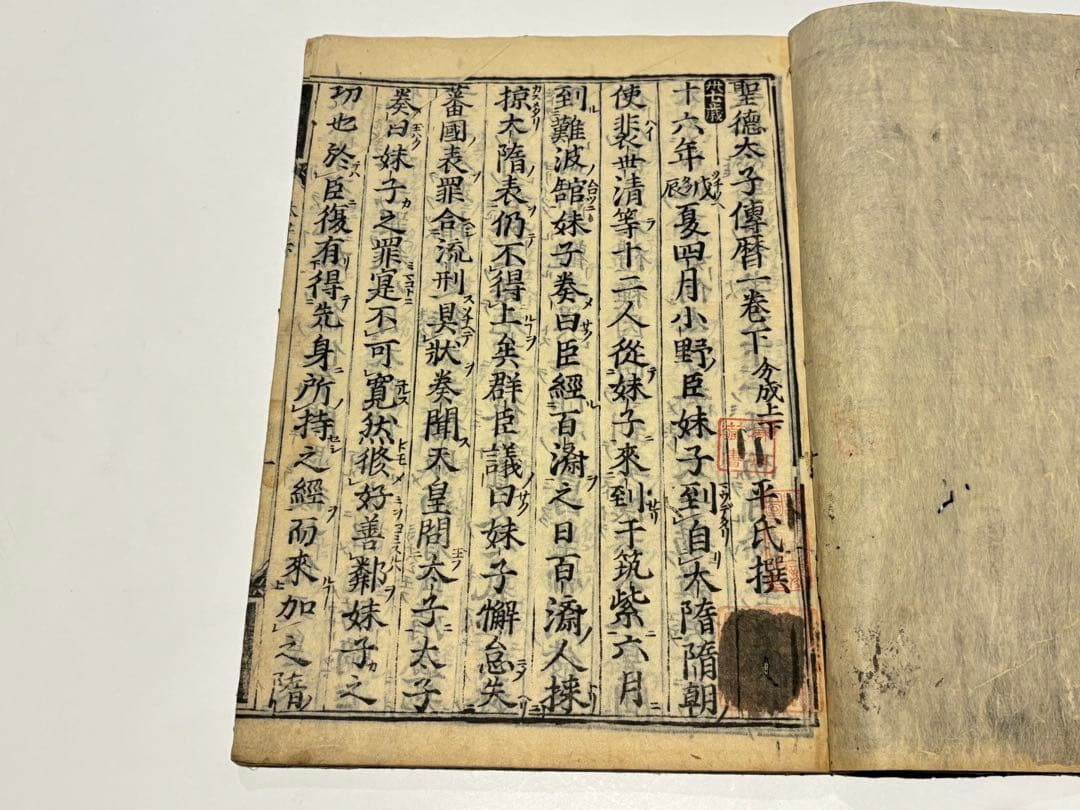 聖德太子傳曆一卷下 分成上下 平氏撰
卅七歲
十六年戊辰夏四月小野臣妹子到自大隋隋朝
使裴世清等十二人從妹子來到于筑紫六月
到難波舘妹子奏曰臣經百濟之日百濟人探
掠大隋表仍不得上矣群臣議曰妹子懈怠失
蕃國表罪合流刑具狀奏聞天皇問太子太子
奏曰妹子之罪寔不可寬然修好善鄰妹子之
功也於臣復有得先身所持之經而來加之隋